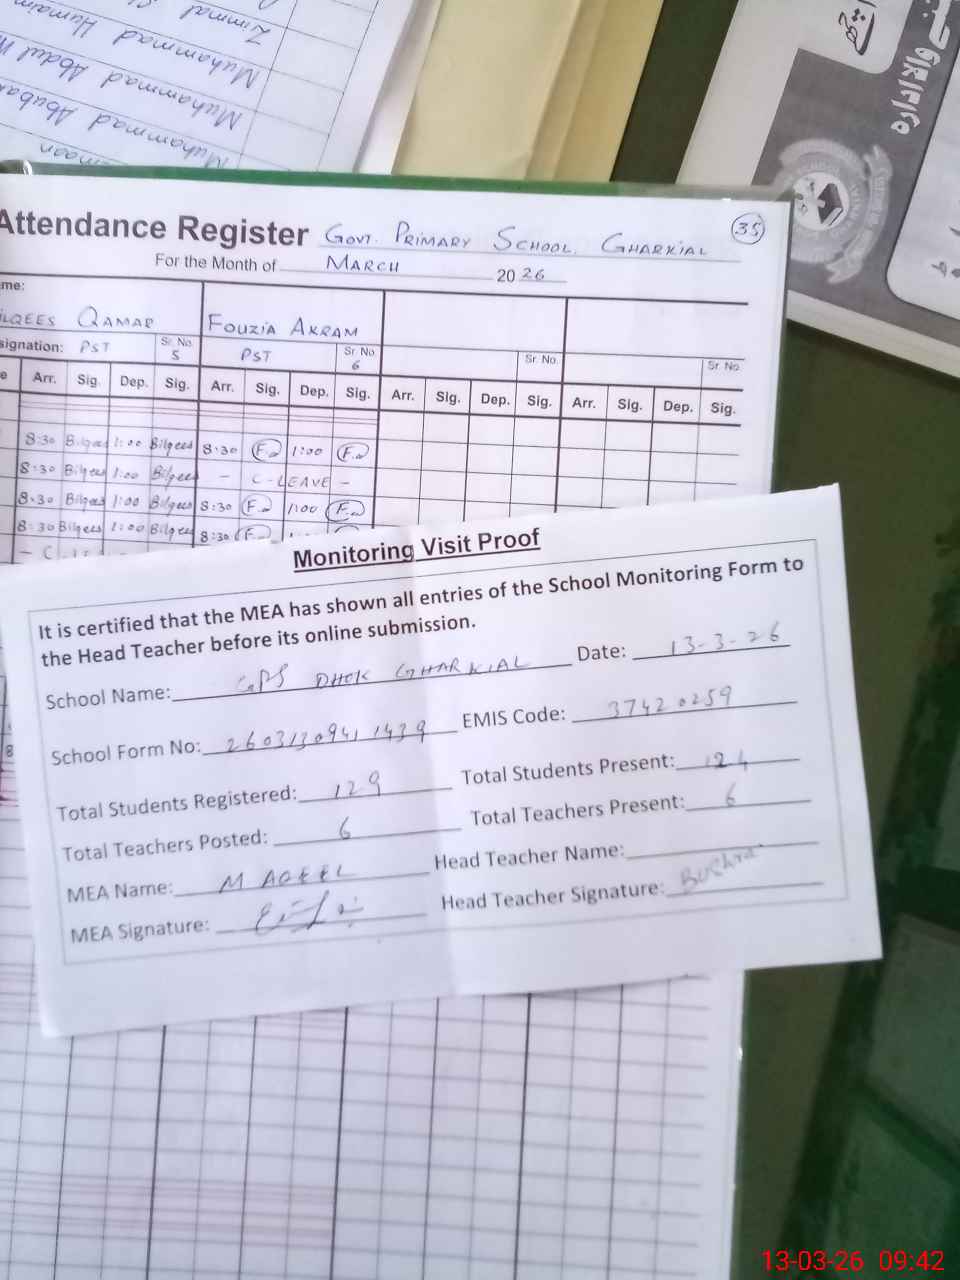 Zimmad
Muhammad Humaim
Muhammad Abdul
Muhammad Abubar
Attendance Register Govt. Primary School. Gharkial
35
For the Month of March 2026
me:
ilqees Qamar
Fouzia Akram
signation: PST Sr. No. 5 PST Sr. No. 6 Sr. No. Sr. No.
e Arr. Sig. Dep. Sig. Arr. Sig. Dep. Sig. Arr. Sig. Dep. Sig. Arr. Sig. Dep. Sig.
8:30 Bilqees 1:00 Bilqees 8:30 F.a 1:00 F.a
8:30 Bilqees 1:00 Bilqees - C-LEAVE -
8:30 Bilqees 1:00 Bilqees 8:30 F.a 1:00 F.a
8:30 Bilqees 1:00 Bilqees 8:30 F.a
Monitoring Visit Proof
It is certified that the MEA has shown all entries of the School Monitoring Form to
the Head Teacher before its online submission.
School Name: GPS DHOK GHARKIAL Date: 13-3-26
School Form No: 26031309411439 EMIS Code: 37420259
Total Students Registered: 129 Total Students Present: 124
Total Teachers Posted: 6 Total Teachers Present: 6
MEA Name: M AQEEL Head Teacher Name:
MEA Signature: Head Teacher Signature: Bushra
13-03-26 09:42